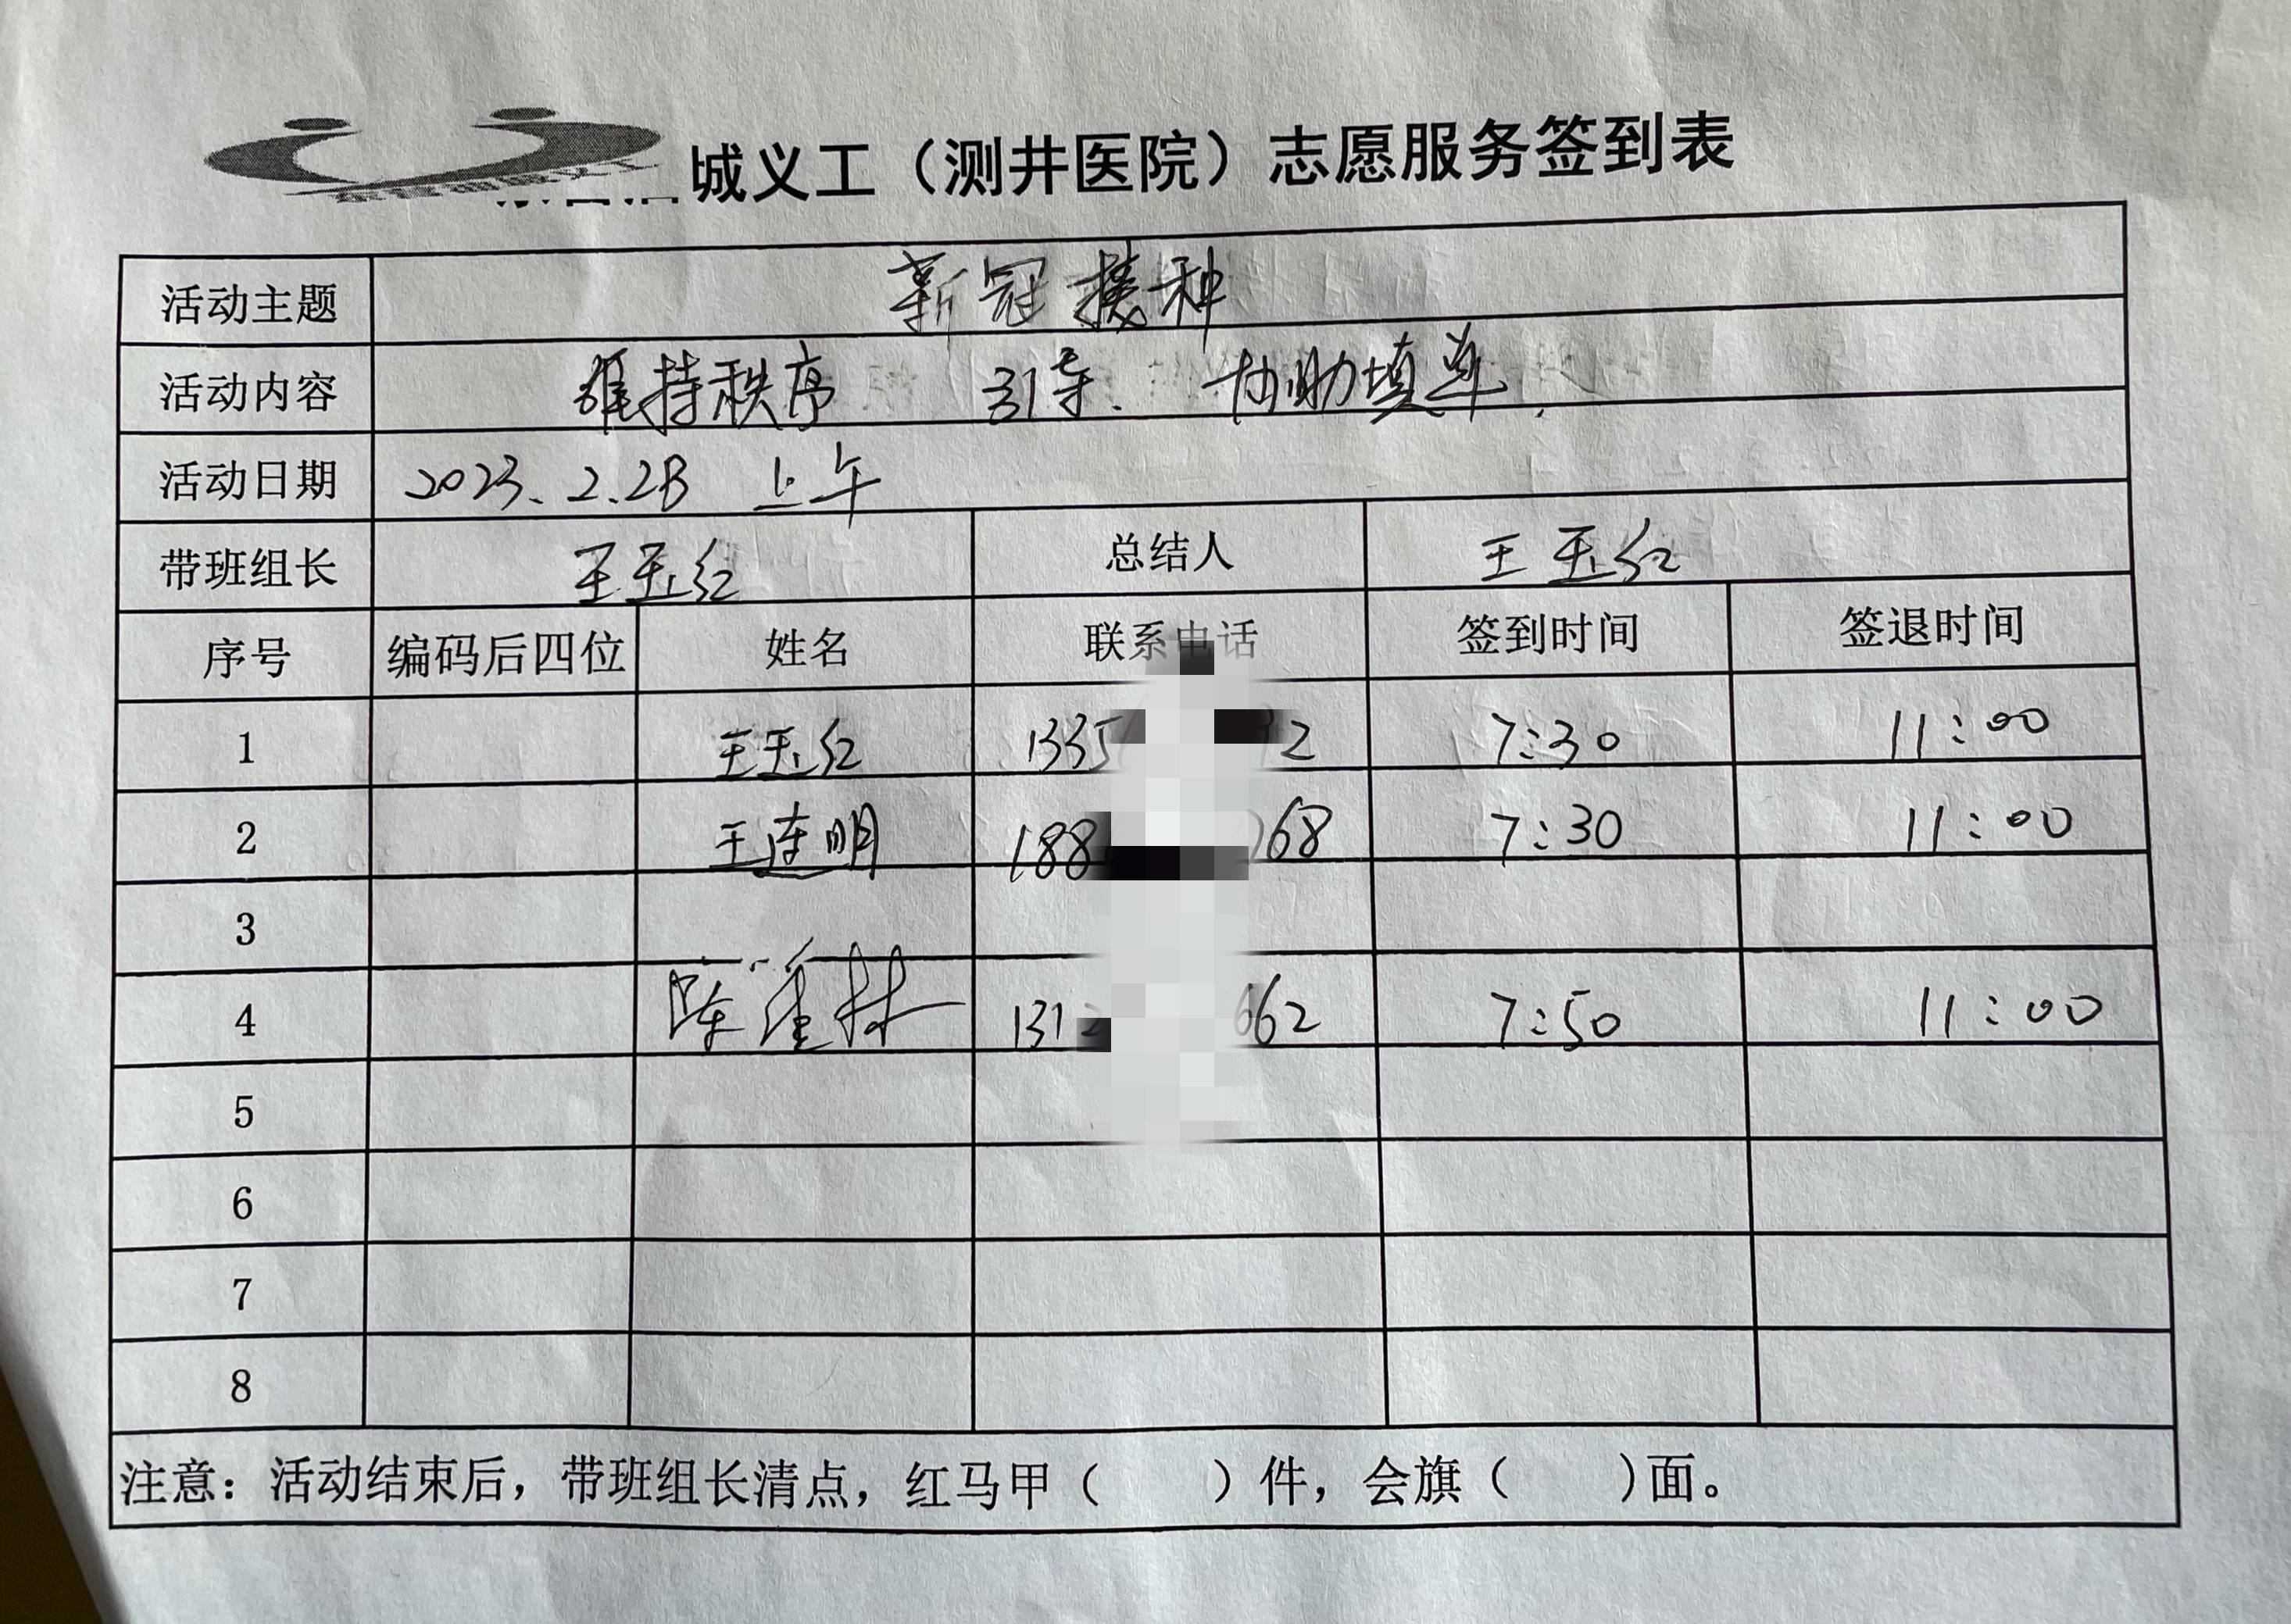 城义工（测井医院）志愿服务签到表
活动主题 新冠接种
活动内容 维持秩序 引导. 协助填单.
活动日期 2023.2.28 上午
带班组长 王玉红 总结人 王玉红
序号 编码后四位 姓名 联系电话 签到时间 签退时间
1 王玉红 1335 32 7:30 11:00
2 王连明 188 968 7:30 11:00
3
4 陈 林 1312 662 7:50 11:00
5
6
7
8
注意：活动结束后，带班组长清点，红马甲（ ）件，会旗（ )面。